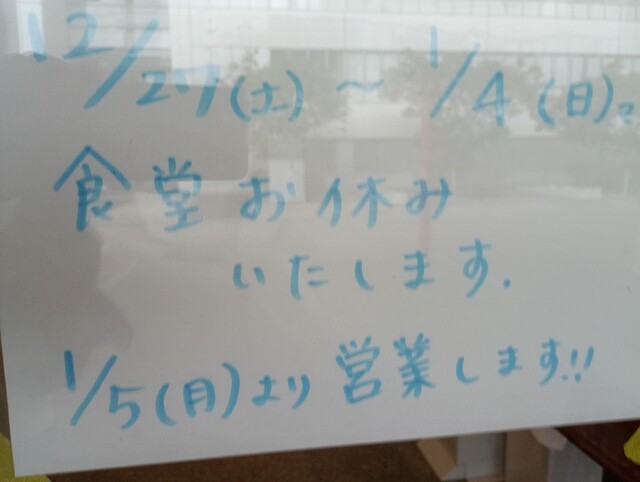 12/27(土)～1/4(日)まで
食堂お休み
いたします.
1/5(月)より営業します!!